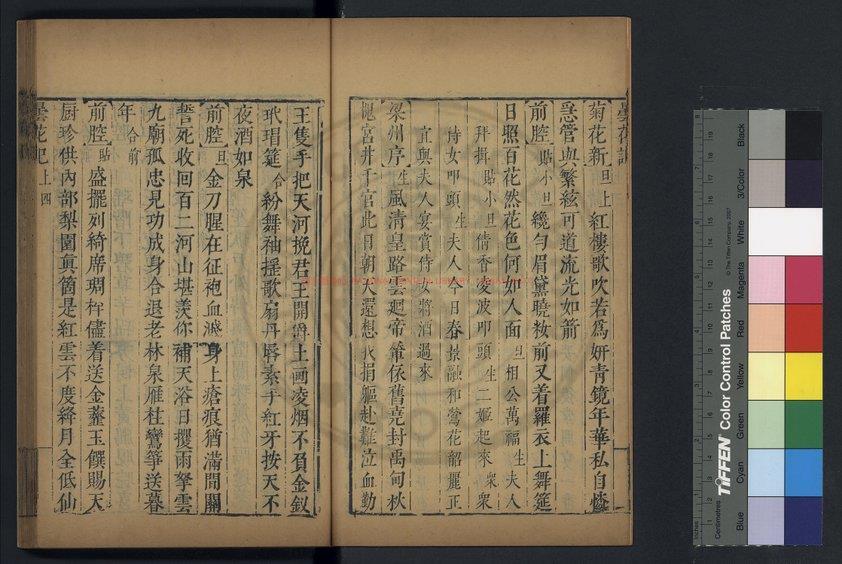 曇花記
菊花新 旦上 紅樓歌吹若爲妍青鏡年華私自憐
急管與繁絃可道流光如箭
前腔 貼小旦 纔勻眉黛曉妝前又着羅衣上舞筵
日照百花然花色何如人面 旦 相公萬福 生 夫人
拜揖 貼小旦 倩香凌波叩頭 生 二姬起來 衆 衆
侍女叩頭 生 夫人今日春景融和鶯花韶麗正
宜與夫人宴賞侍女將酒過來
梁州序 生 風清皇路雲迴帝輦依舊堯封禹甸秋
槐宮井千官此日朝天還想 捐軀赴難泣血勤
王隻手把天河挽君王開爵土畫凌烟不負金釵
玳瑁筵 合 紛舞袖搖歌扇丹唇素手紅牙按天不
夜酒如泉
前腔 旦 金刀腥在征袍血濺身上瘡痕猶滿間關
誓死收回百二河山堪羨你補天浴日攫雨拏雲
九廟孤忠見功成身合退老林泉雁柱鸞箏送暮
年 合前
前腔 貼 盛擺列綺席琱 儘着送金虀玉饌賜天
厨珍供內部梨園眞箇是紅雲不度綘月全低仙
曇花記 上 四
Inches
Centimetres
TIFFEN Color Control Patches
© The Tiffen Company, 2007
Blue
Cyan
Green
Yellow
Red
Magenta
White
3/Color
Black